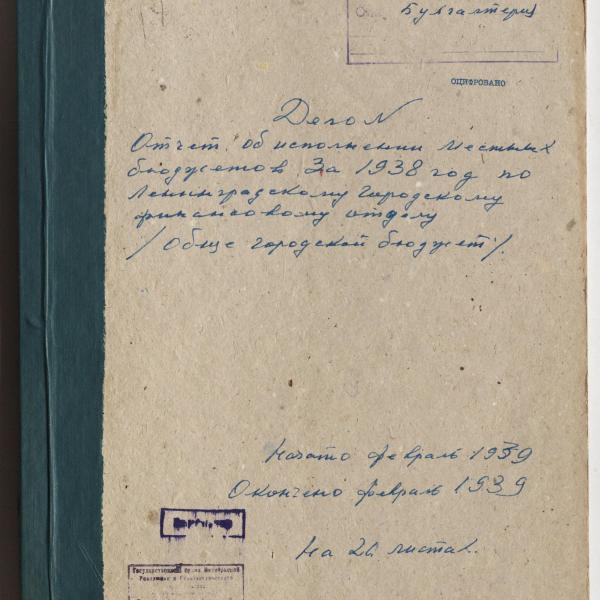 Бухгалтерия
ОЦИФРОВАНО
Дело N
Отчет об исполнении местных
бюджетов За 1938 год по
Ленинградскому городскому
финансовому отделу
/Обще городской бюджет/.
Начато февраль 1939
Окончено февраль 1939
На 26 листах.
Государственный Архив Октябрьской
Революции и Социалистического